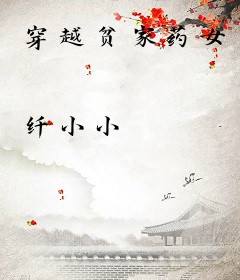 穿越贫家药女
纤小小